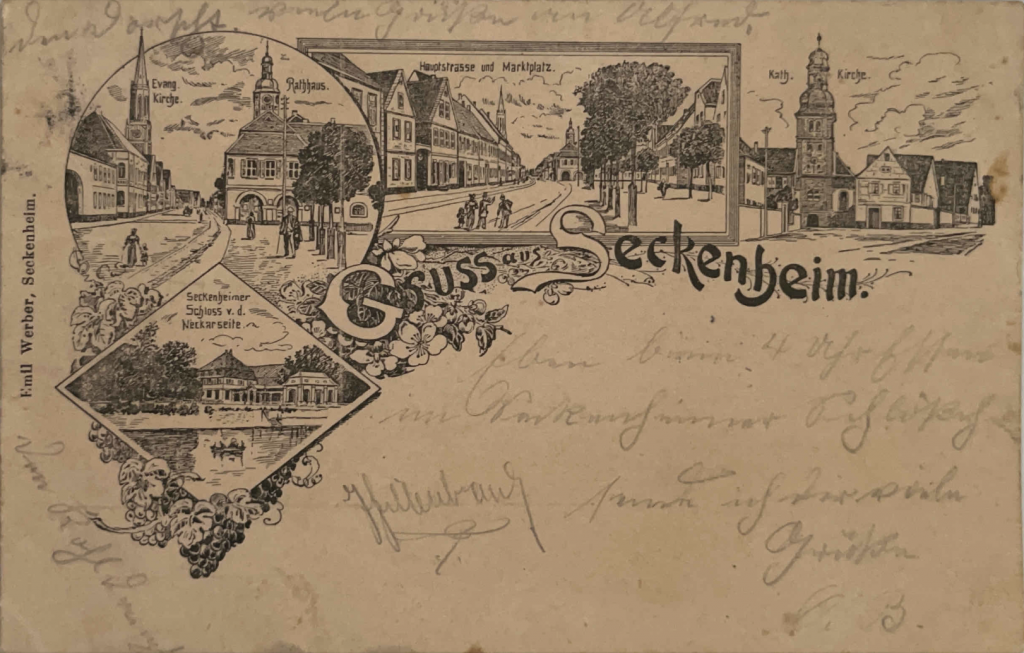 viele Grüße an Alfred.
Evang. Kirche.
Rathhaus.
Hauptstrasse und Marktplatz.
Kath. Kirche.
Gruss aus Seckenheim.
Seckenheimer
Schloss v. d.
Neckarseite.
Emil Werber, Seckenheim.
Eben beim 4 Uhr Essen
im Seckenheimer
sende ich dir viele
Grüße